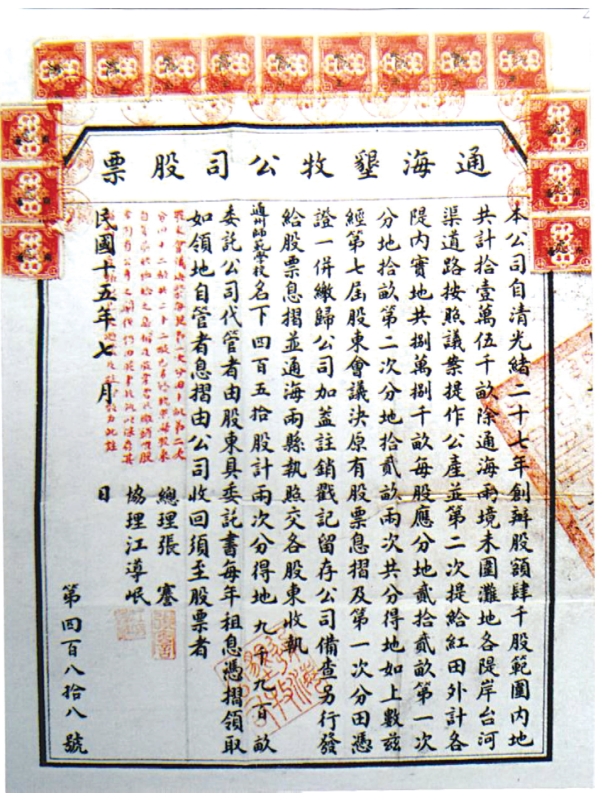 通海墾牧公司股票
本公司自清光緒二十七年創辦股額肆千股範圍內地
共計拾壹萬伍千畝除通海兩境未圍灘地各隄岸台河
渠道路按照議案提作公產並第二次提給紅田外計各
隄內實地共捌萬捌千畝每股應分地貳拾貳畝第一次
分地拾畝第二次分地拾貳畝兩次共分得地如上數茲
經第七屆股東會議決原有股票息摺及第一次分田憑
證一併繳歸公司加蓋註銷戳記留存公司備查另行發
給股票息摺並通海兩縣執照交各股東收執
通州師範學校名下四百五拾股計兩次分得地九千九百畝
委託公司代管者由股東具委託書每年租息憑摺領取
如領地自管者息摺由公司收回須至股票者
總理張謇
協理江導岷
民國十五年七月 日
第四百八拾八號